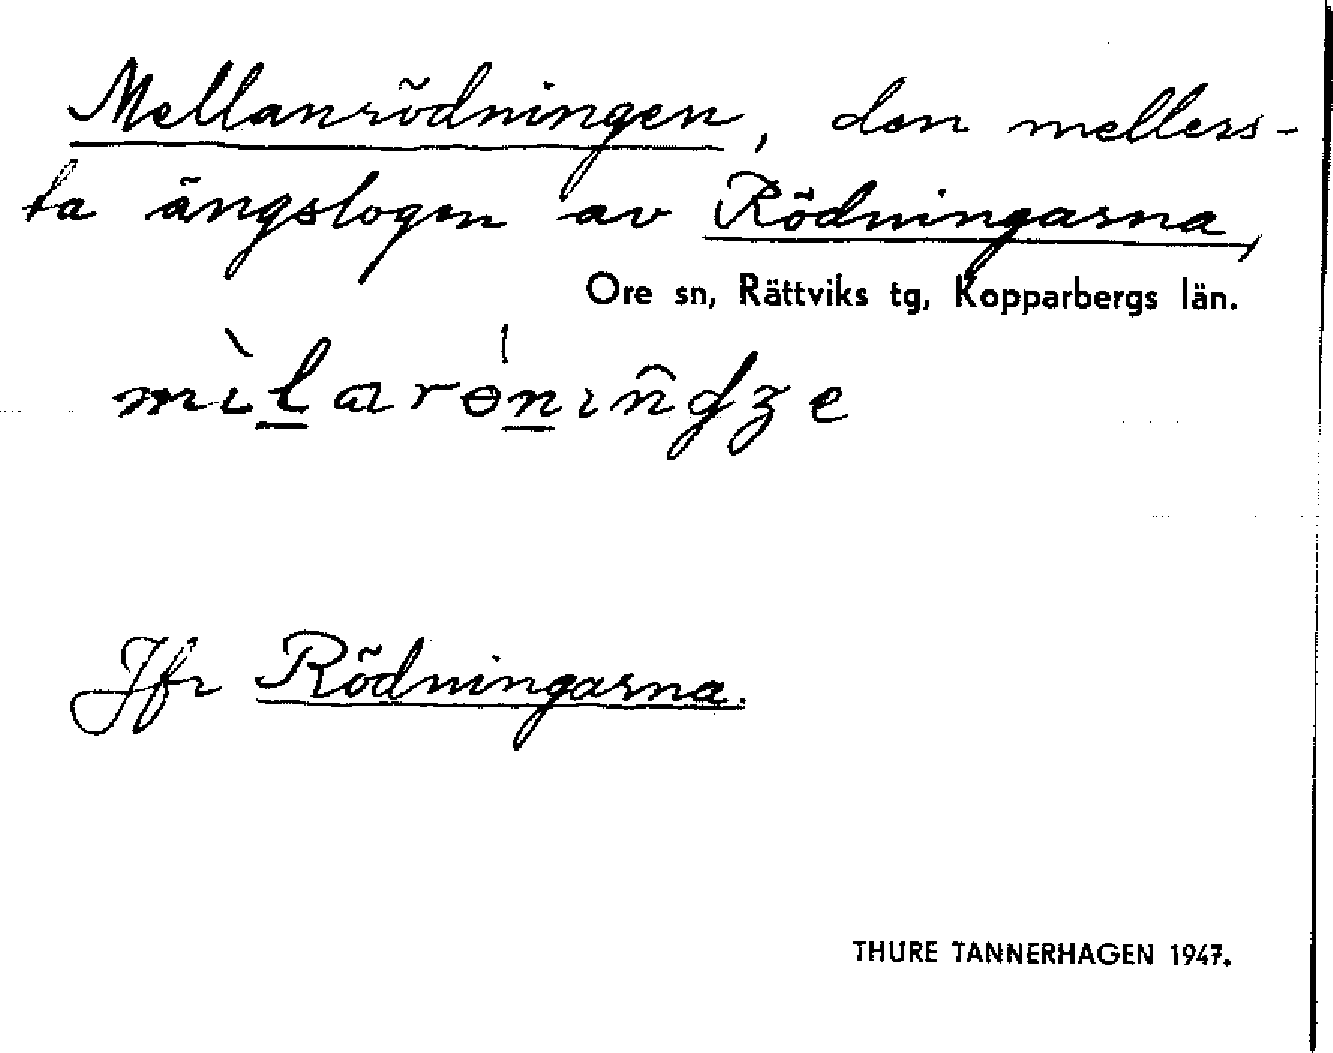 Mellanrödningen, den mellers-
ta ängslogen av Rödningarna,
Ore sn, Rättviks tg, Kopparbergs län.
Jfr Rödningarna.
THURE TANNERHAGEN 1947.